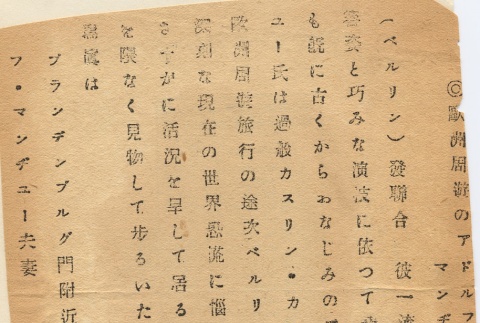 ◎歐洲周遊のアドルフ
マンヂ
(ベルリン)發聯合 彼一流
と巧みな演技に依つて
も既に古くからおなじみの
ユー氏は過般カスリン・カ
歐洲周遊旅行の途次ベルリ
深刻な現在の世界恐慌に悩
さすがに活況を呈して居る
を限なく見物して步ろいた
寫眞は
ブランデンブルグ門附近
フ・マンヂユー夫妻